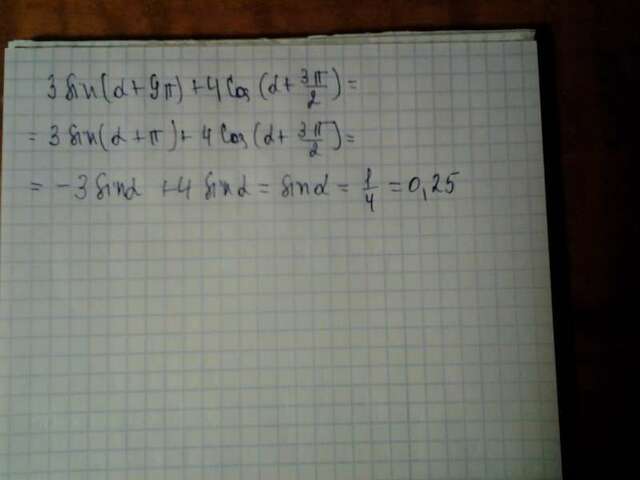 3 sin(α+9π)+4 cos(α+3π/2)=
= 3 sin(α+π)+ 4 cos(α+ 3π/2)=
= -3 sinα +4 sinα = sinα = 1/4 = 0,25